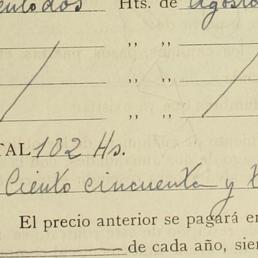 Hts. de Agosto
" "
" "
TAL 102 Hs.
Ciento cincuenta y
El precio anterior se pagará en
de cada año, sien